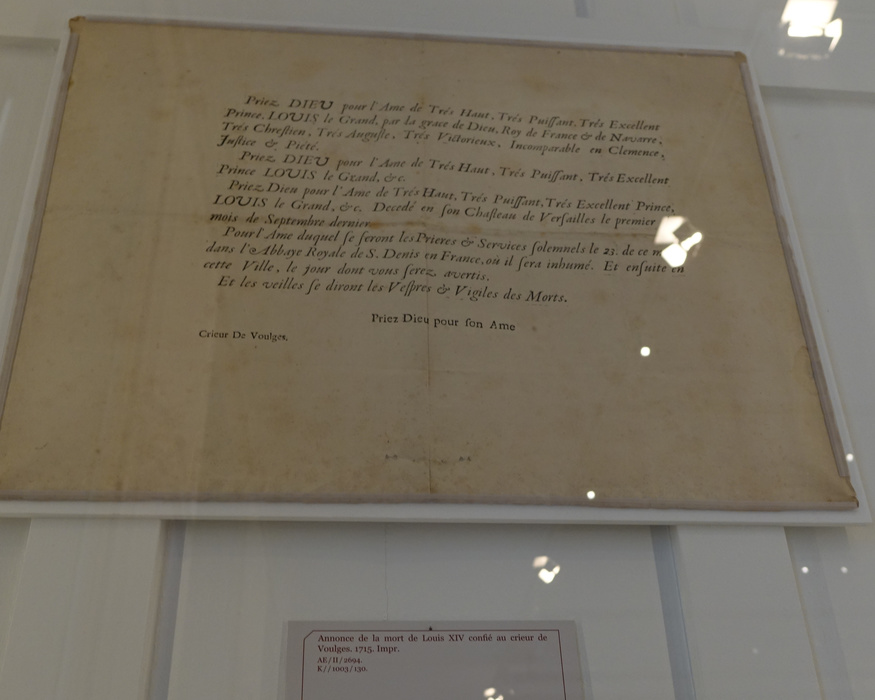 Priez DIEU pour l'Ame de Trés Haut, Trés Puiſſant, Trés Excellent
Prince, LOUIS le Grand, par la grace de Dieu, Roy de France & de Navarre,
Trés Chreſtien, Trés Auguſte, Trés Victorieux, Incomparable en Clemence,
Juſtice & Pieté.
Priez DIEU pour l'Ame de Trés Haut, Trés Puiſſant, Trés Excellent
Prince LOUIS le Grand, &c.
Priez Dieu pour l'Ame de Trés Haut, Trés Puiſſant, Trés Excellent Prince,
LOUIS le Grand, &c. Decedé en ſon Chaſteau de Verſailles le premier
mois de Septembre dernier
Pour l'Ame duquel ſe ſeront les Prieres & Services ſolemnels le 23. de ce
dans l'Abbaye Royale de S. Denis en France, où il ſera inhumé. Et enſuite en
cette Ville, le jour dont vous ſerez avertis.
Et les veilles ſe diront les Veſpres & Vigiles des Morts.
Priez Dieu pour ſon Ame
Crieur De Voulges.
Annonce de la mort de Louis XIV confié au crieur de
Voulges. 1715. Impr.
AE/II/2694.
K//1003/130.